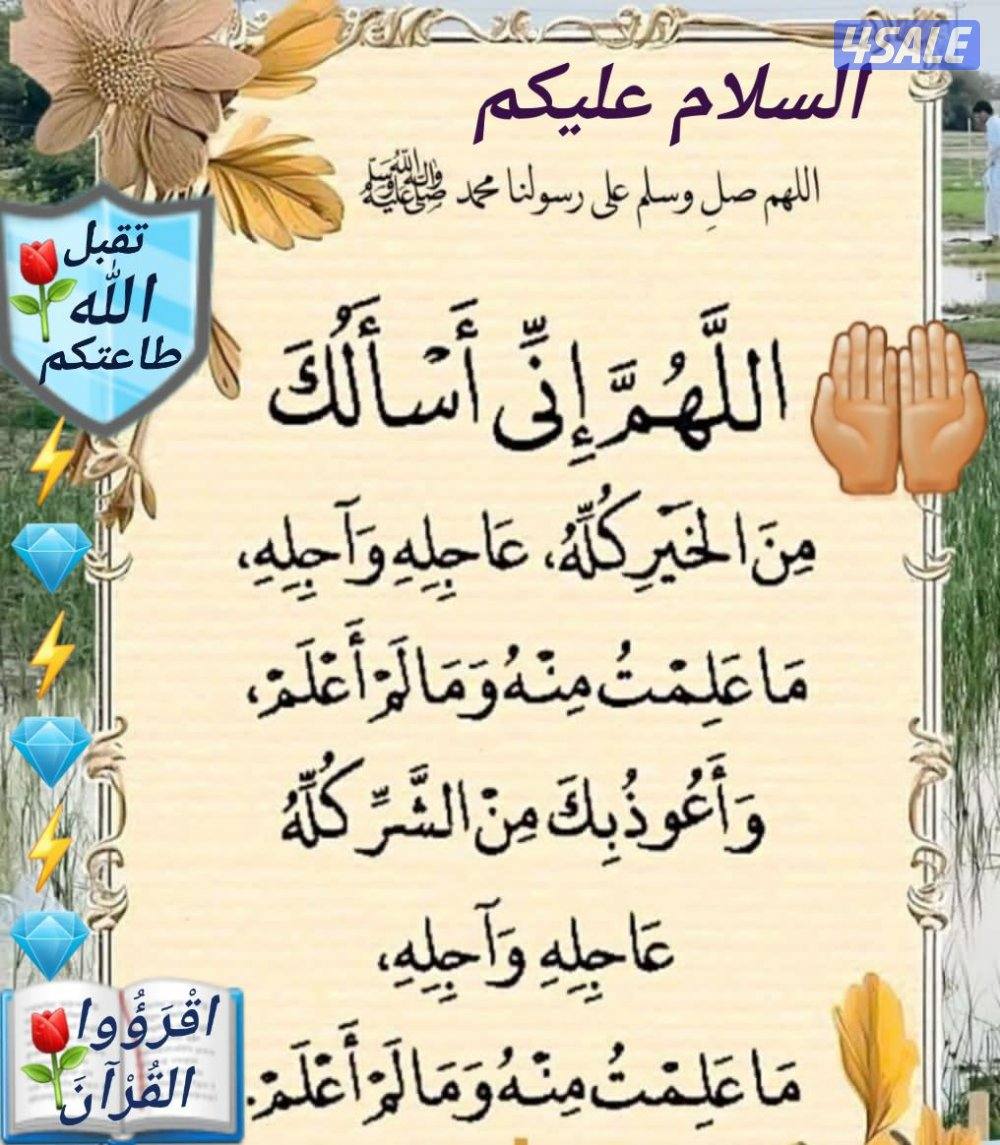 4SALE
السلام عليكم
اللهم صلِ وسلم على رسولنا محمد ﷺ
تقبل
الله
طاعتكم
اللَّهُمَّ إِنِّي أَسْأَلُكَ
مِنَ الخَيْرِ كُلِّهِ، عَاجِلِهِ وَآجِلِهِ،
مَا عَلِمْتُ مِنْهُ وَمَا لَمْ أَعْلَمْ،
وَأَعُوذُ بِكَ مِنَ الشَّرِّ كُلِّهِ
عَاجِلِهِ وَآجِلِهِ،
مَا عَلِمْتُ مِنْهُ وَمَا لَمْ أَعْلَمْ.
اقْرَؤُوا
القُرْآنَ